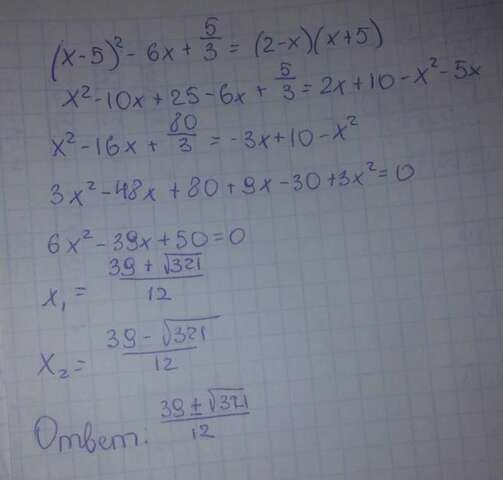 (x-5)² - 6x + 5/3 = (2-x)(x+5)
x² - 10x + 25 - 6x + 5/3 = 2x + 10 - x² - 5x
x² - 16x + 80/3 = -3x + 10 - x²
3x² - 48x + 80 + 9x - 30 + 3x² = 0
6x² - 39x + 50 = 0
x₁ = (39 + √321)/12
x₂ = (39 - √321)/12
Ответ: (39 ± √321)/12